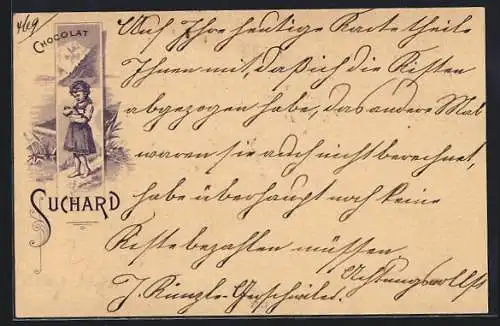 469
CHOCOLAT
SUCHARD
Auf Ihre heutige Karte theile
Ihnen mit, daß ich die Kisten
abgezogen habe, das andere Mal
waren sie auch nicht berechnet,
habe überhaupt noch keine
Kiste bezahlen müssen.
Achtungsvollst
J. Künzle